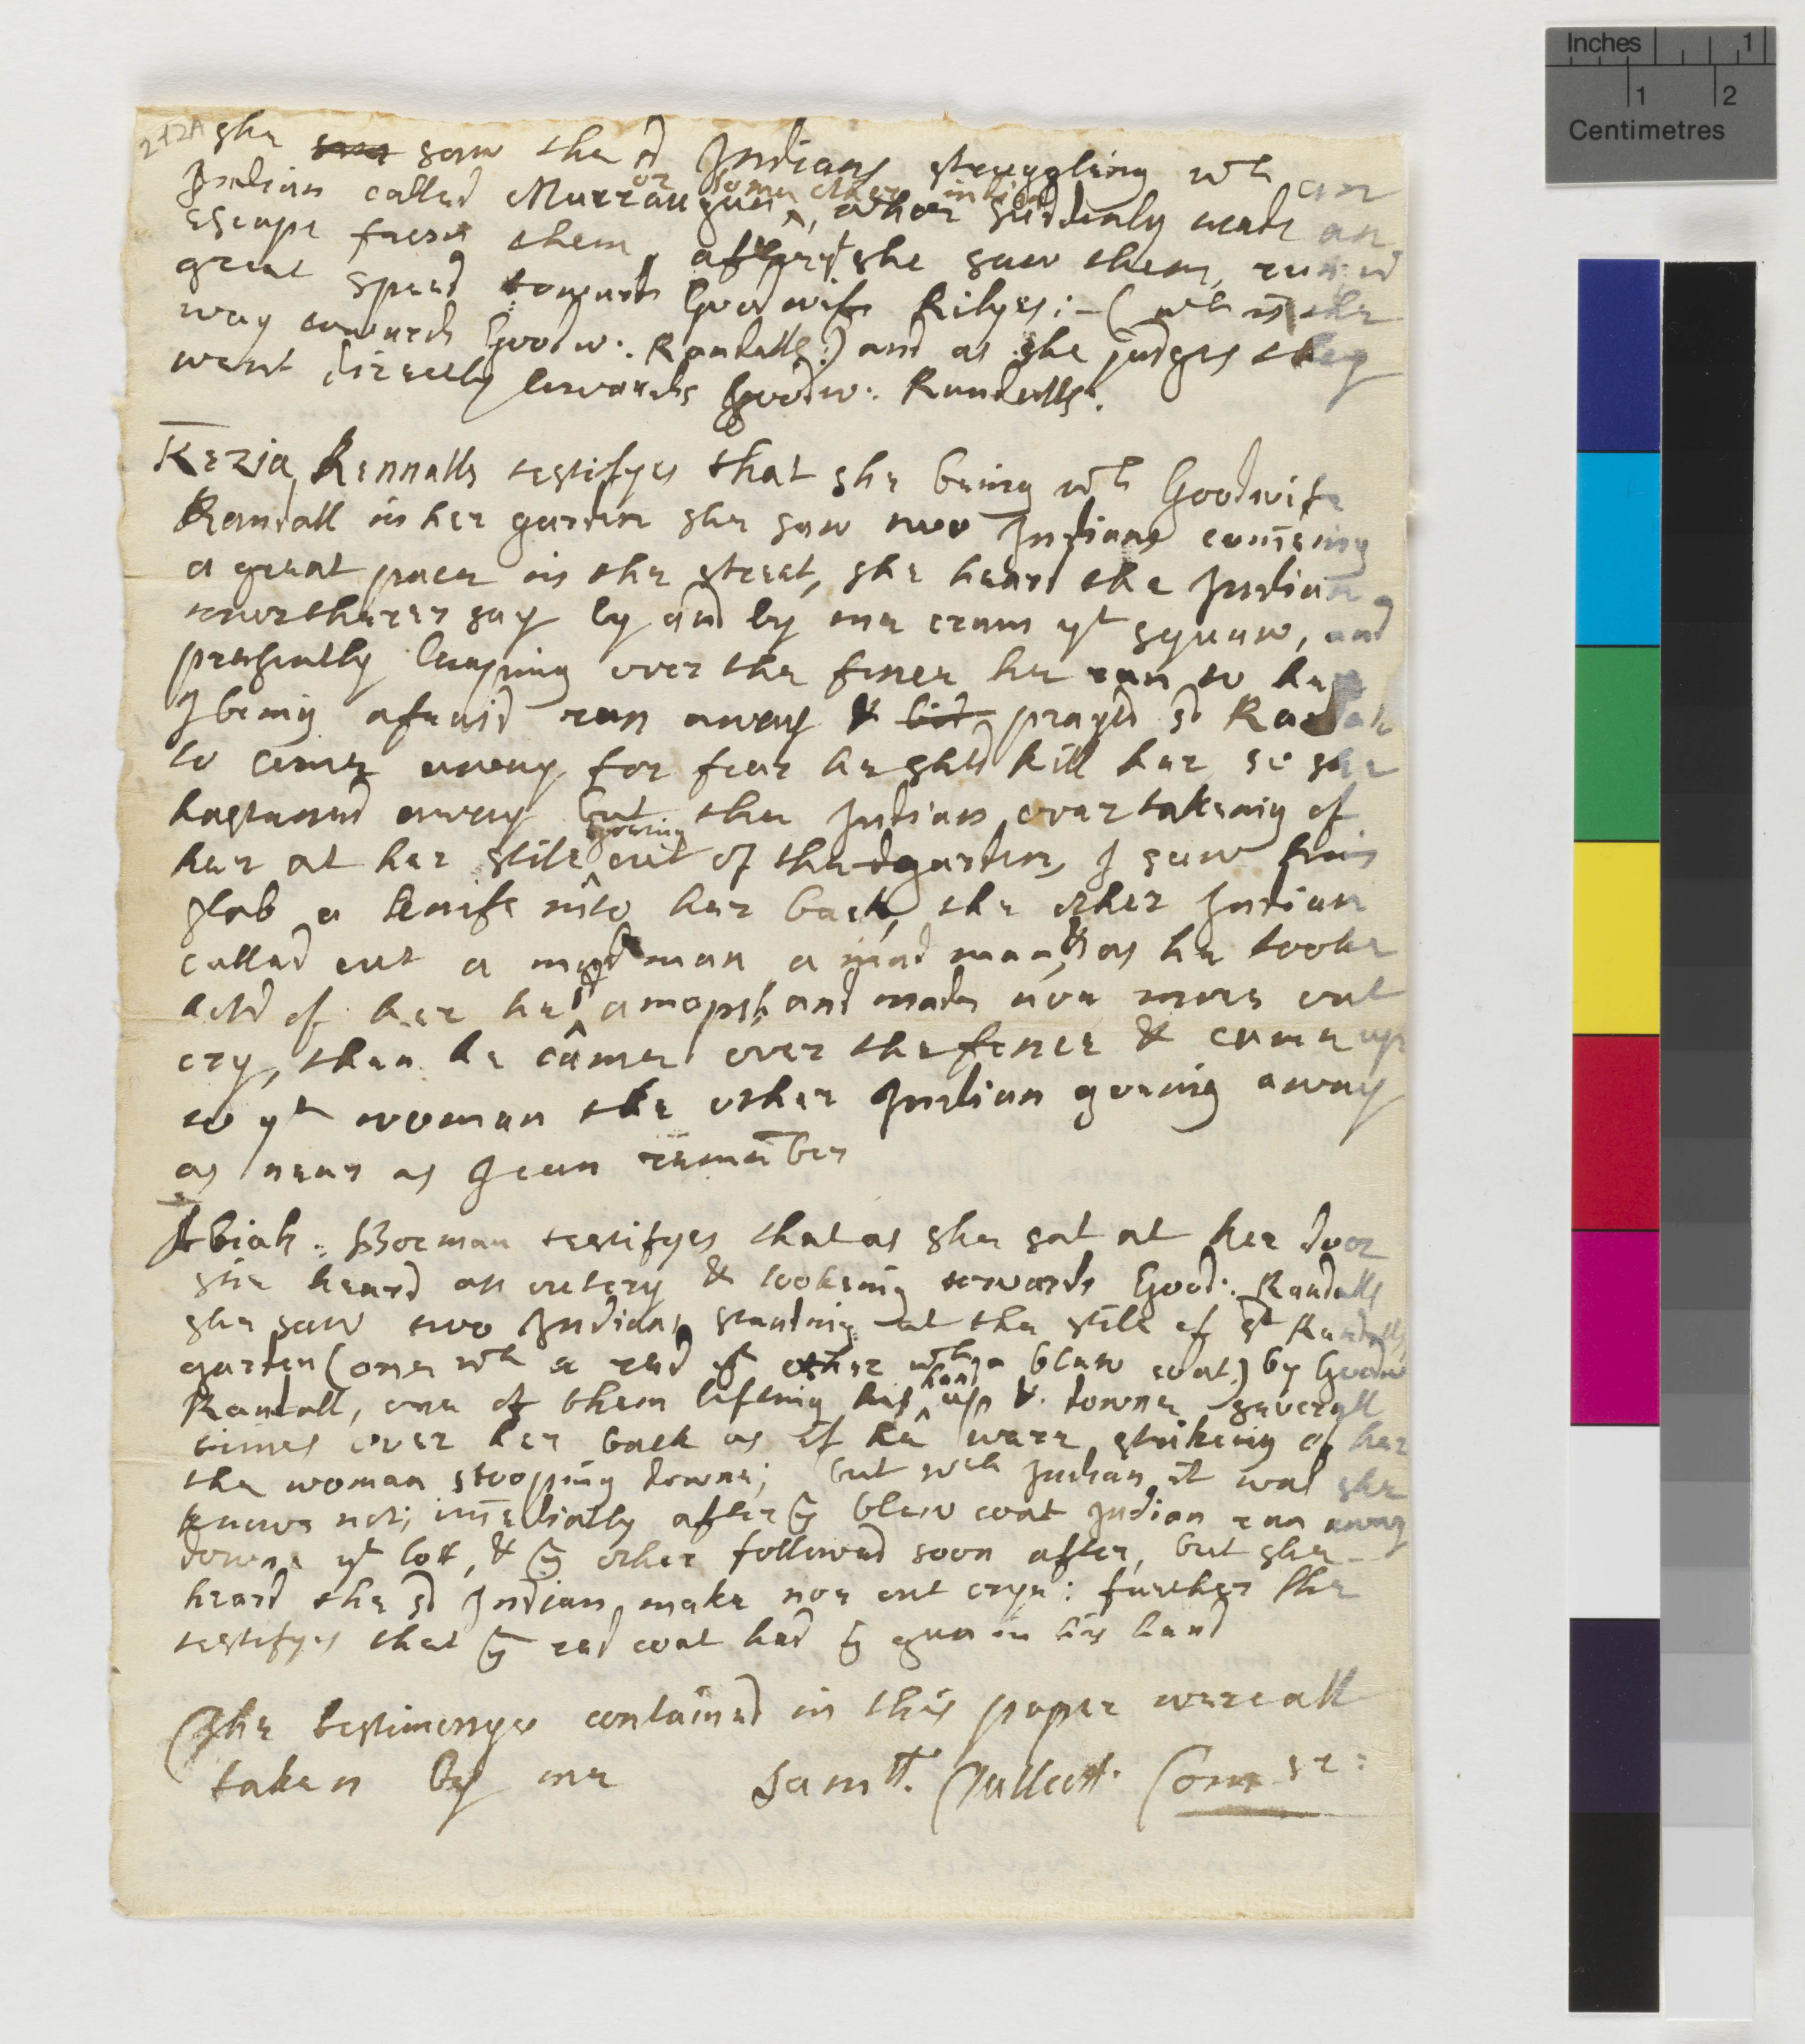 212A she saw saw the sd Indians struggling wth an
Indian called Murraugun or some other indian, whoe suddenly made an
escape from them, afterwd she saw them, run wd
great speed towards Goodwife Kilyes; - ( wch is the
way towards Goodw: Randalls:) and as she judges they
went directly towards Goodw: Randalls.
Kezia Kennalls testifyes that she being wth Goodwife
Randall in her garden she saw two Indians comeing
a great pace in the street, she heard the Indian
say by and by me cram yt squaw, and
presently leaping over the fence he ran to her
I being afraid ran away & bid prayed sd Randall
to come away for fear he shld kill her so she
hastened away but the Indian overtakeing of
her at her stile goeing out of the garden, I saw him
stab a knife into her back, the other Indian
called out a mad man a mad man, & as he tooke
hold of her hed amopsh, and made noe more out
cry, then he came over the fence & came up
to ye woman the other Indian goeing away
as near as I can remember
Abiah: Borman testifyes that as she sat at her door
she heard an outcry & lookeing towards Good: Randalls
she saw two Indians standing at the stile of sd Randalls
garden (one wth a red ye other wth a blew coat) by Goodw
Randall, one of them lifting his hand up & downe severall
times over her back as if he were strikeing of her
the woman stooping downe; but wch Indian it was she
knows not; imediatly after ye blew coat Indian ran away
downe ye lott, & ye other followed soon after, but she
heard the sd Indian make noe out crye: further she
testifyes that ye red coat had ye gun in his hand
The testimonyes contained in this paper were all
taken by me Samll. Tallcott. Comsr:
Inches 1
1 2
Centimetres